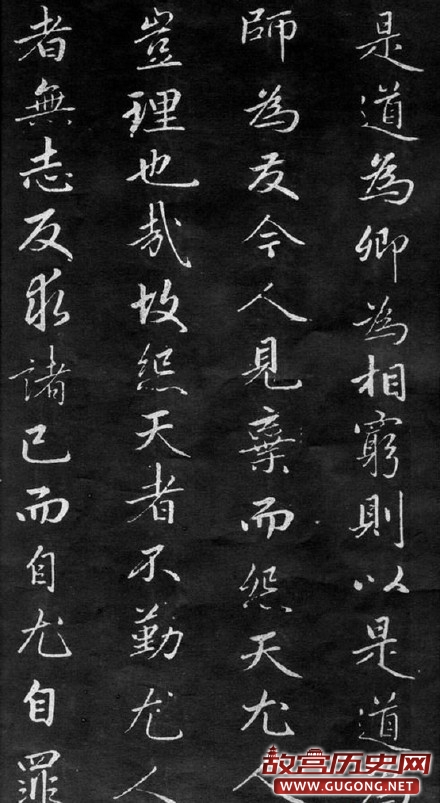 是道為卿為相窮則以是道為
師為友今人見棄而怨天尤人
豈理也哉故怨天者不勤尤人
者無志反求諸己而自尤自罪
故宫历史网
WWW.GUGONG.NET